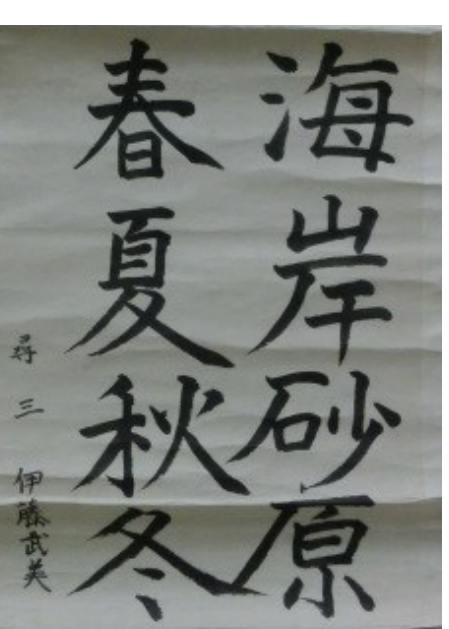 海岸砂原
春夏秋冬
尋三 伊藤武美